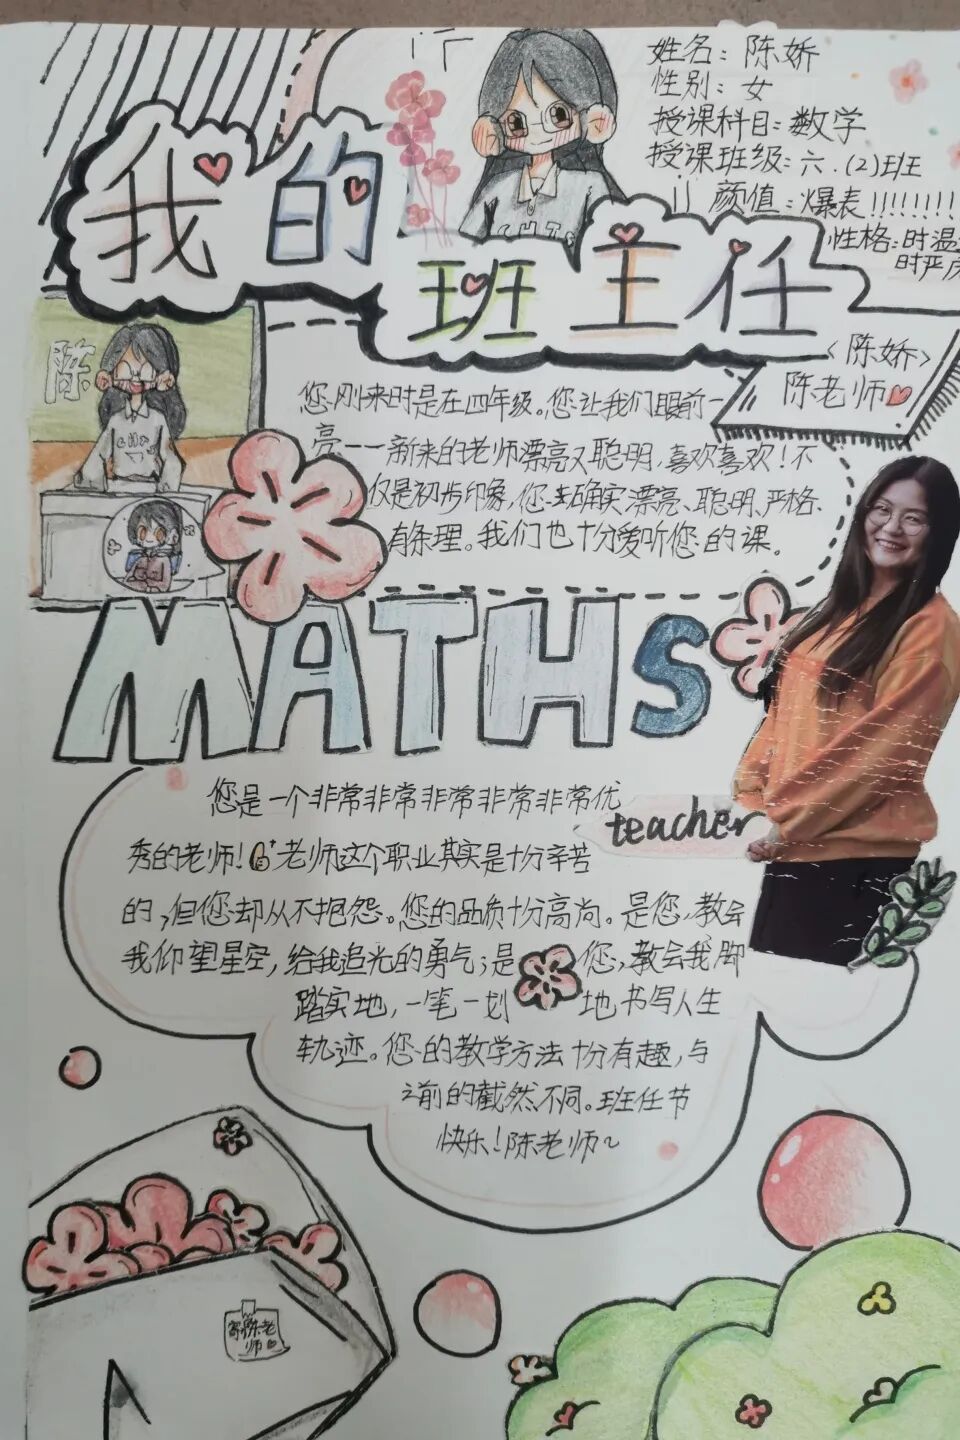 姓名：陈娇
性别：女
授课科目：数学
授课班级：六.(2)班
颜值：爆表!!!!!!!!
性格：时温
时严
我的
班主任
<陈娇>
陈老师
陈
您刚来时是在四年级。您让我们眼前一
亮——新来的老师漂亮又聪明，喜欢喜欢！不
仅是初步印象，您确实漂亮、聪明、严格、
有条理。我们也十分爱听您的课。
MATHS
teacher
您是一个非常非常非常非常非常优
秀的老师！老师这个职业其实是十分辛苦
的，但您却从不抱怨。您的品质十分高尚。是您，教会
我仰望星空，给我追光的勇气；是您，教会我脚
踏实地，一笔一划地书写人生
轨迹。您的教学方法十分有趣，与
之前的截然不同。班任节
快乐！陈老师~
寄陈老
师